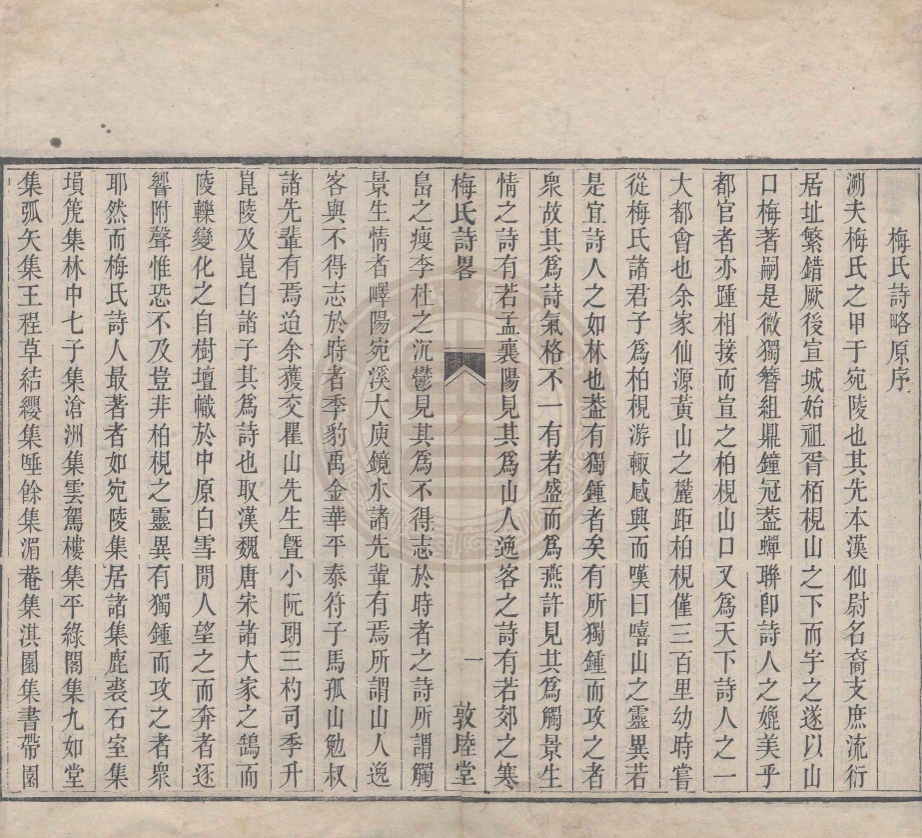 梅氏詩略原序
溯夫梅氏之甲于宛陵也其先本漢仙尉名裔支庶流衍
居址繁錯厥後宣城始祖胥栢梘山之下而宇之遂以山
口梅著嗣是微獨簪組鼎鐘冠葢蟬聯卽詩人之媲美乎
都官者亦踵相接而宣之柏梘山口又爲天下詩人之一
大都會也余家仙源黃山之麓距柏梘僅三百里幼時嘗
從梅氏諸君子爲柏梘游輙感與而嘆曰嘻山之靈異若
是宜詩人之如林也葢有獨鍾者矣有所獨鍾而攻之者
衆故其爲詩氣格不一有若盛而爲燕許見其爲觸景生
情之詩有若孟襄陽見其爲山人逸客之詩有若郊之寒
梅氏詩畧 一 敦睦堂
島之瘦李杜之沉鬱見其爲不得志於時者之詩所謂觸
景生情者嶧陽宛溪大庾鏡水諸先輩有焉所謂山人逸
客與不得志於時者季豹禹金華平泰符子馬孤山勉叔
諸先輩有焉迨余獲交瞿山先生曁小阮朗三杓司季升
崑陵及崑白諸子其爲詩也取漢魏唐宋諸大家之鵠而
陵轢變化之自樹壇幟於中原白雪開人望之而奔者逐
響附聲惟恐不及豈非柏梘之靈異有獨鍾而攻之者衆
耶然而梅氏詩人最著者如宛陵集居諸集鹿裘石室集
塤箎集林中七子集滄洲集雲駕樓集平綠閣集九如堂
集弧矢集王程草結纓集唾餘集湄菴集淇園集書帶園